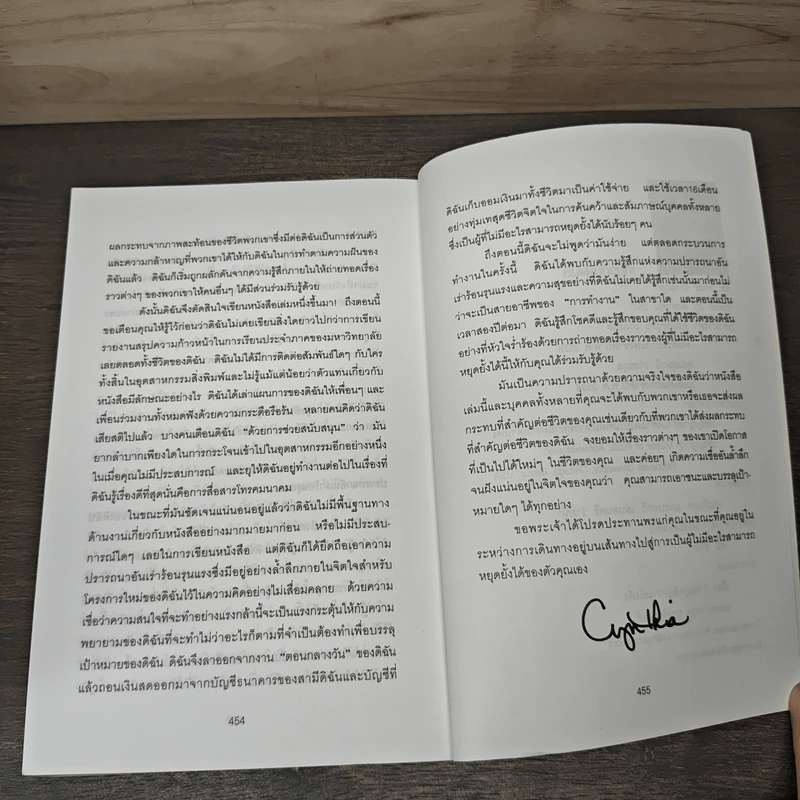 ผลกระทบจากภาพสะท้อนของชีวิตพวกเขาซึ่งมีต่อดิฉันเป็นการส่วนตัว
และความกล้าหาญที่พวกเขาได้ให้กับดิฉันในการทำตามความฝันของ
ดิฉันแล้ว ดิฉันก็เริ่มถูกผลักดันจากความรู้สึกภายในให้ถ่ายทอดเรื่อง
ราวต่างๆ ของพวกเขาให้คนอื่นๆ ได้มีส่วนร่วมรับรู้ด้วย
ดังนั้นดิฉันจึงตัดสินใจเขียนหนังสือเล่มหนึ่งขึ้นมา! ถึงตอนนี้
ขอเตือนคุณให้รู้ไว้ก่อนว่าดิฉันไม่เคยเขียนสิ่งใดยาวไปกว่าการเขียน
รายงานสรุปความก้าวหน้าในการเรียนประจำภาคของมหาวิทยาลัย
เลยตลอดทั้งชีวิตของดิฉัน ดิฉันไม่ได้มีการติดต่อสัมพันธ์ใดๆ กับใคร
ทั้งสิ้นในอุตสาหกรรมสิ่งพิมพ์และไม่รู้แม้แต่น้อยว่าตัวแทนเกี่ยวกับ
หนังสือมีลักษณะอย่างไร ดิฉันได้เล่าแผนการของดิฉันให้เพื่อนๆ และ
เพื่อนร่วมงานทั้งหมดฟังด้วยความกระตือรือร้น หลายคนคิดว่าดิฉัน
เสียสติไปแล้ว บางคนเตือนดิฉัน "ด้วยการช่วยสนับสนุน" ว่า มัน
ยากลำบากเพียงใดในการกระโจนเข้าไปในอุตสาหกรรมอีกอย่างหนึ่ง
ในเมื่อคุณไม่มีประสบการณ์ และยุให้ดิฉันอยู่ทำงานต่อไปในเรื่องที่
ดิฉันรู้เรื่องดีที่สุดนั่นคือการสื่อสารโทรคมนาคม
ในขณะที่มันชัดเจนแน่นอนอยู่แล้วว่าดิฉันไม่มีพื้นฐานทาง
ด้านงานเกี่ยวกับหนังสืออย่างมากมายมาก่อน หรือไม่มีประสบ-
การณ์ใดๆ เลยในการเขียนหนังสือ แต่ดิฉันก็ได้ยึดถือเอาความ
ปรารถนาอันเร่าร้อนรุนแรงซึ่งมีอยู่อย่างล้ำลึกภายในจิตใจสำหรับ
โครงการใหม่ของดิฉันไว้ในความคิดอย่างไม่เสื่อมคลาย ด้วยความ
เชื่อว่าความสนใจที่จะทำอย่างแรงกล้านี้จะเป็นแรงกระตุ้นให้กับความ
พยายามของดิฉันที่จะทำไม่ว่าอะไรก็ตามที่จำเป็นต้องทำเพื่อบรรลุ
เป้าหมายของดิฉัน ดิฉันจึงลาออกจากงาน "ตอนกลางวัน" ของดิฉัน
แล้วถอนเงินสดออกมาจากบัญชีธนาคารของสามีดิฉันและบัญชีที่
454
ดิฉันเก็บออมเงินมาทั้งชีวิตมาเป็นค่าใช้จ่าย และใช้เวลา16เดือน
อย่างทุ่มเทสุดชีวิตจิตใจในการค้นคว้าและสัมภาษณ์บุคคลทั้งหลาย
ซึ่งเป็นผู้ที่ไม่มีอะไรสามารถหยุดยั้งได้นับร้อยๆ คน
ถึงตอนนี้ดิฉันจะไม่พูดว่ามันง่าย แต่ตลอดกระบวนการ
ทำงานในครั้งนี้ ดิฉันได้พบกับความรู้สึกแห่งความปรารถนาอัน
เร่าร้อนรุนแรงและความสุขอย่างที่ดิฉันไม่เคยได้รู้สึกเช่นนั้นมาก่อนไม่
ว่าจะเป็นสายอาชีพของ "การทำงาน" ในสาขาใด และตอนนี้เป็น
เวลาสองปีต่อมา ดิฉันรู้สึกโชคดีและรู้สึกขอบคุณที่ได้ใช้ชีวิตของดิฉัน
อย่างที่หัวใจร่ำร้องด้วยการถ่ายทอดเรื่องราวของผู้ที่ไม่มีอะไรสามารถ
หยุดยั้งได้นี้ให้กับคุณได้ร่วมรับรู้ด้วย
มันเป็นความปรารถนาด้วยความจริงใจของดิฉันว่าหนังสือ
เล่มนี้และบุคคลทั้งหลายที่คุณจะได้พบกับพวกเขาหรือเธอจะส่งผล
กระทบที่สำคัญต่อชีวิตของคุณเช่นเดียวกับที่พวกเขาได้ส่งผลกระทบ
ที่สำคัญต่อชีวิตของดิฉัน จงยอมให้เรื่องราวต่างๆ ของเขาเปิดโอกาส
ที่เป็นไปได้ใหม่ๆ ในชีวิตของคุณ และค่อยๆ เกิดความเชื่ออันล้ำลึก
จนฝังแน่นอยู่ในจิตใจของคุณว่า คุณสามารถเอาชนะและบรรลุเป้า-
หมายใดๆ ได้ทุกอย่าง
ขอพระเจ้าได้โปรดประทานพรแก่คุณในขณะที่คุณอยู่ใน
ระหว่างการเดินทางอยู่บนเส้นทางไปสู่การเป็นผู้ไม่มีอะไรสามารถ
หยุดยั้งได้ของตัวคุณเอง
Cynthia
455